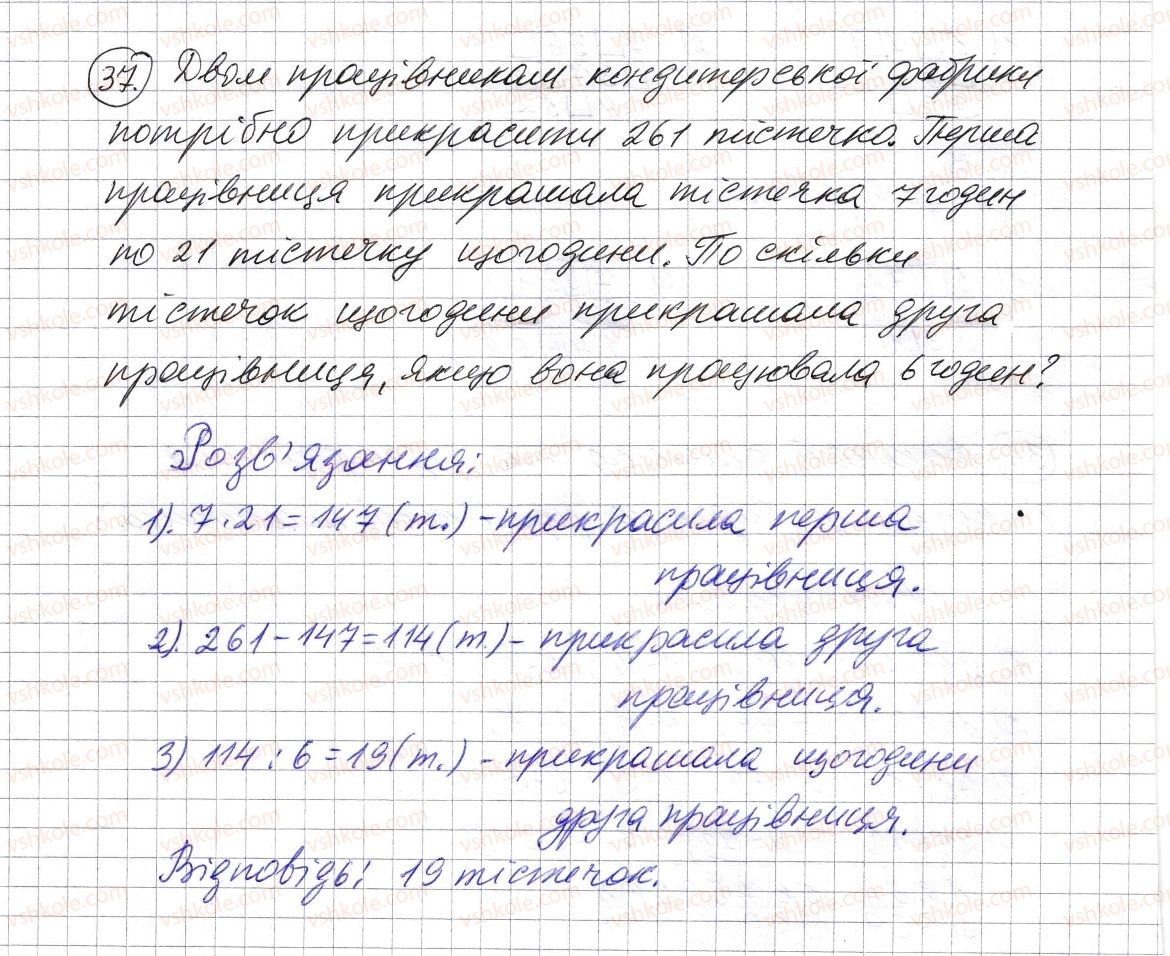 37. Двом працівникам кондитерської фабрики
потрібно прикрасити 261 тістечко. Перша
працівниця прикрашала тістечка 7 годин
по 21 тістечку щогодини. По скільки
тістечок щогодини прикрашала друга
працівниця, якщо вона працювала 6 годин?
Розв'язання:
1). 7·21=147(т.) - прикрасила перша
працівниця.
2). 261-147=114(т.) - прикрасила друга
працівниця.
3) 114:6=19(т.) - прикрашала щогодини
друга працівниця.
Відповідь: 19 тістечок.